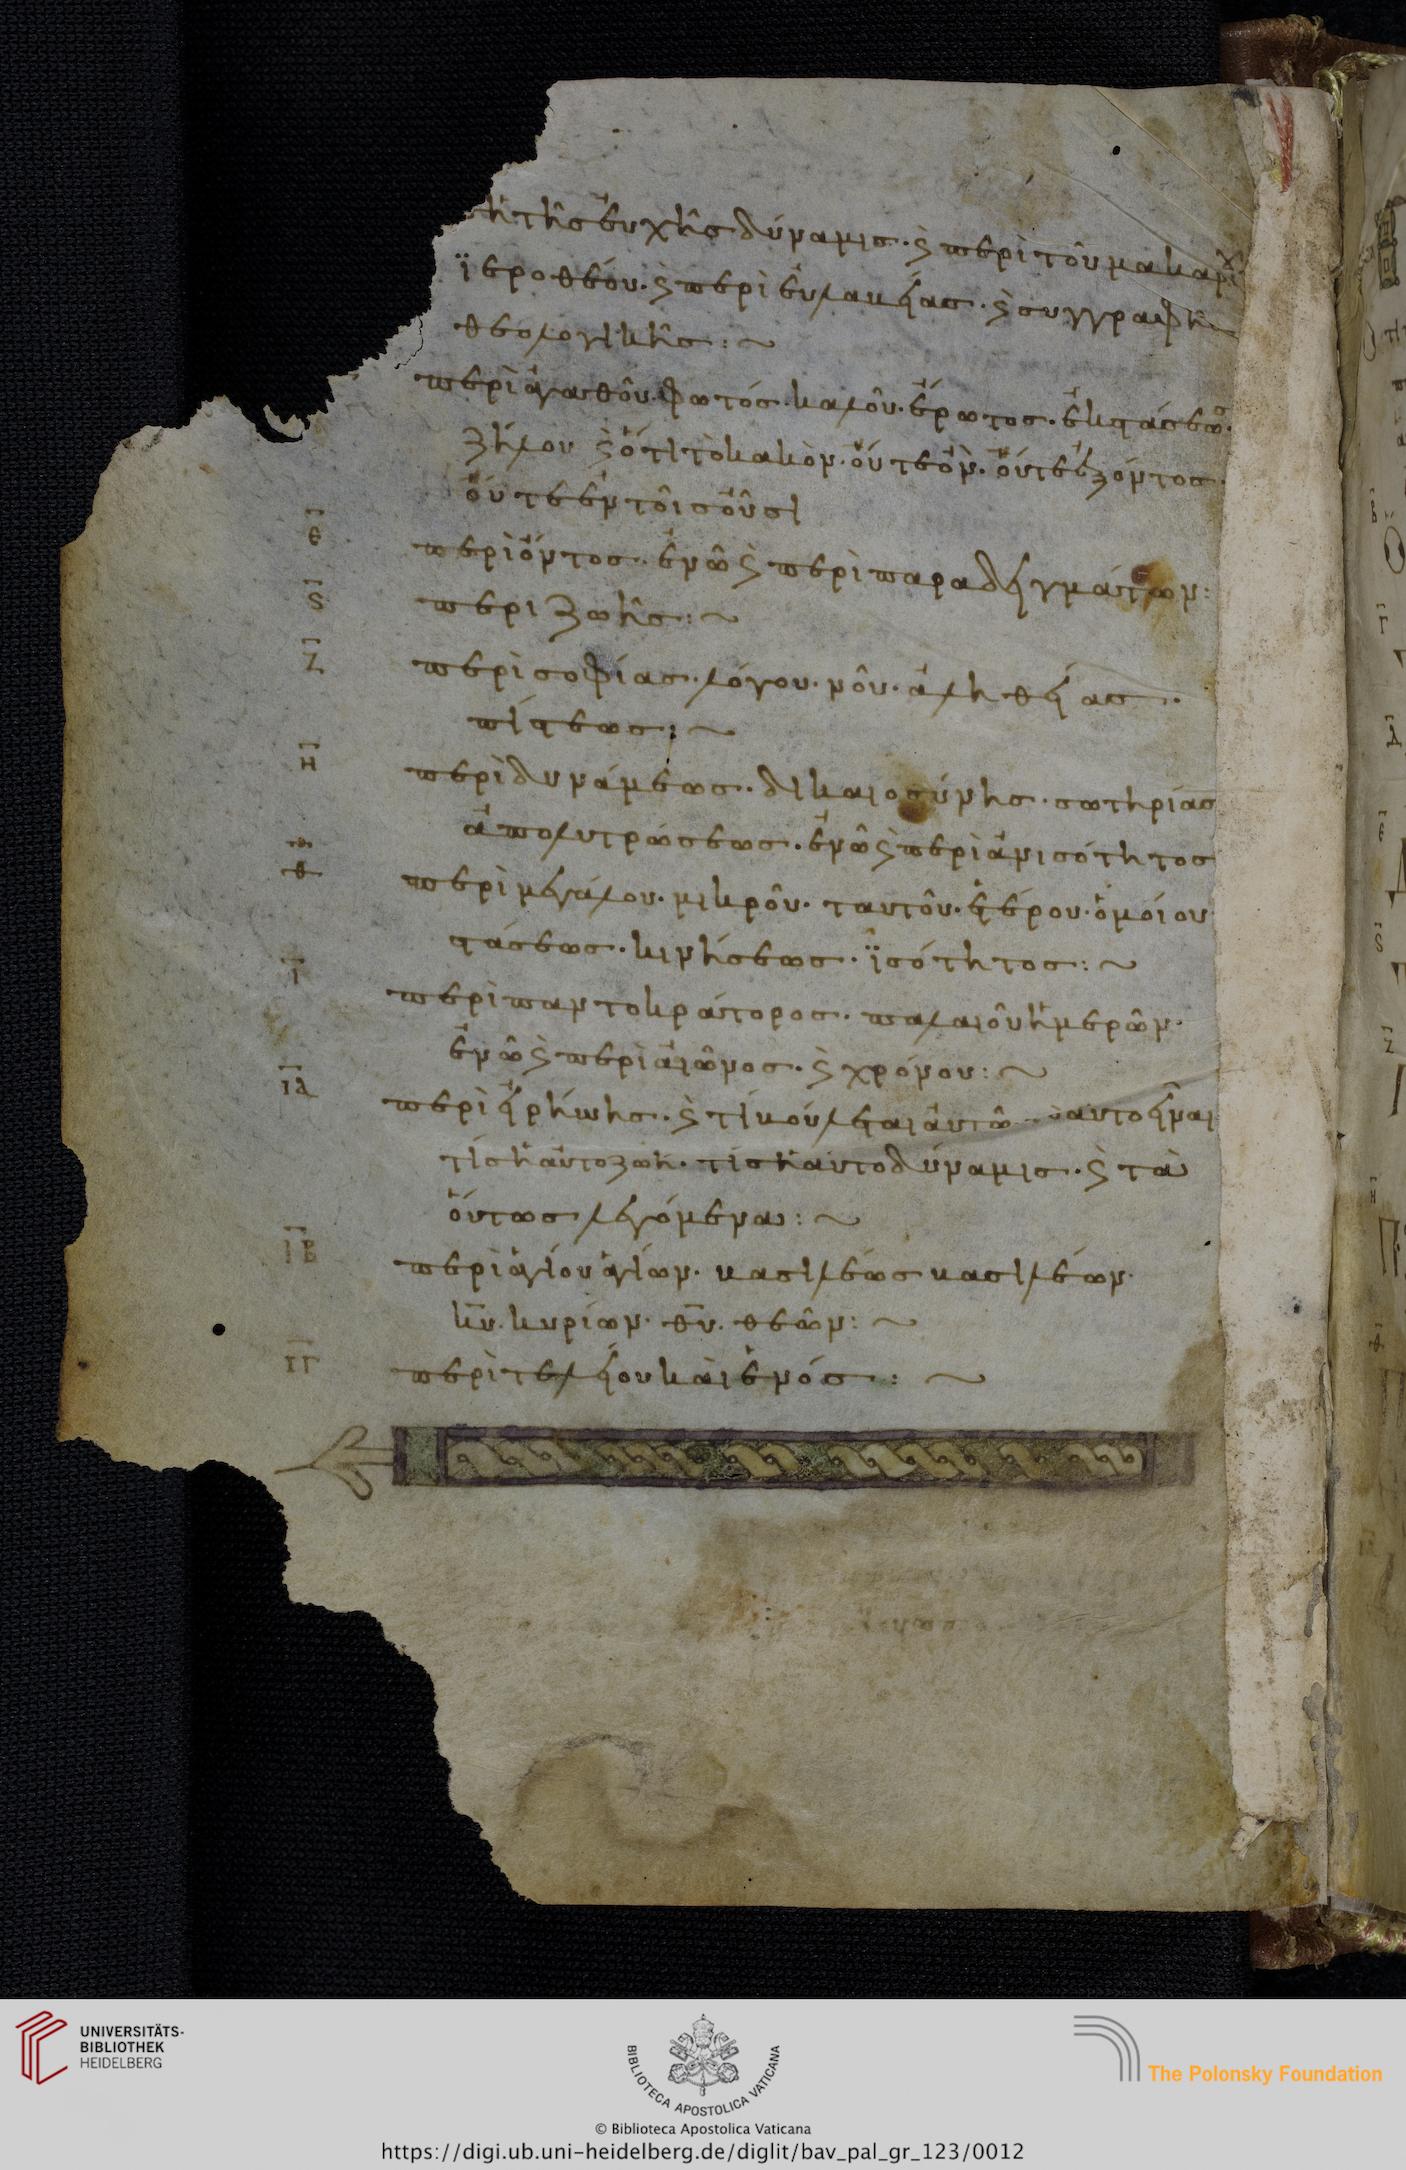 ἡ τῆς εὐχῆς δύναμις· ϗ περὶ τοῦ μακαρί
ϊεροθέου· ϗ περὶ εὐλαβείας· ϗ συγγραφῆς
θεολογικῆς: ~
περὶ ἀγαθοῦ· φωτός· καλοῦ· ἔρωτος· ἐκστάσεως·
ζήλου ϗ ὅτι τὸ κακὸν· οὔτε ὂν· οὔτε ἐξ ὄντος·
οὔτε ἐν τοῖς οὖσι
ε περὶ ὄντος· ἐν ᾧ ϗ περὶ παραδειγμάτων:
ϛ περι ζωῆς: ~
ζ περὶ σοφίας· λόγου· νοῦ· ἀληθείας·
πίστεως: ~
η περὶ δυνάμεως· δικαιοσύνης· σωτηρίας
ἀπολυτρώσεως· ἐν ᾧ ϗ περὶ ἀνισότητος
θ περὶ μεγάλου· μικροῦ· ταυτοῦ· ἑτέρου· ὁμοίου
στάσεως· κινήσεως· ϊσότητος: ~
ι περὶ παντοκράτορος· παλαιοῦ ἡμερῶν·
ἐν ᾧ ϗ περὶ αἰῶνος· ϗ χρόνου: ~
ια περὶ εἰρήνης· ϗ τί βούλεται αὐτῶ αυτοεῖναι
τίς ἡ αὐτοζωὴ· τίς ἡ αὐτοδύναμις· ϗ τὰ
οὕτως λεγόμενα: ~
ιβ περὶ ἁγίου ἁγίων· βασιλέως βασιλέων·
κυ· κυρίων· θυ· θεῶν: ~
ιγ περὶ τελείου καὶ ἑνός: ~
UNIVERSITÄTS-
BIBLIOTHEK
HEIDELBERG
BIBLIOTECA APOSTOLICA VATICANA
The Polonsky Foundation
© Biblioteca Apostolica Vaticana
https://digi.ub.uni-heidelberg.de/diglit/bav_pal_gr_123/0012